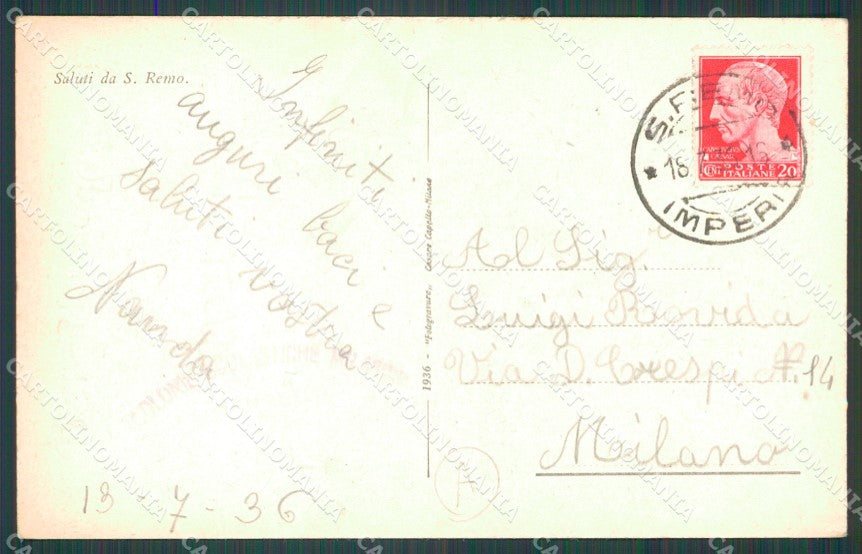 Saluti da S. Remo.
Infiniti
auguri baci e
saluti vostra
Nanda
18-7-36
1936 - "Fotogravure„ Cesare Capello-Milano
POSTE
ITALIANE
CENT 20
18
IMPERIA
Al Sig.
Luigi Rovida
Via D. Crespi N. 14
Milano
CARTOLINOMANIA